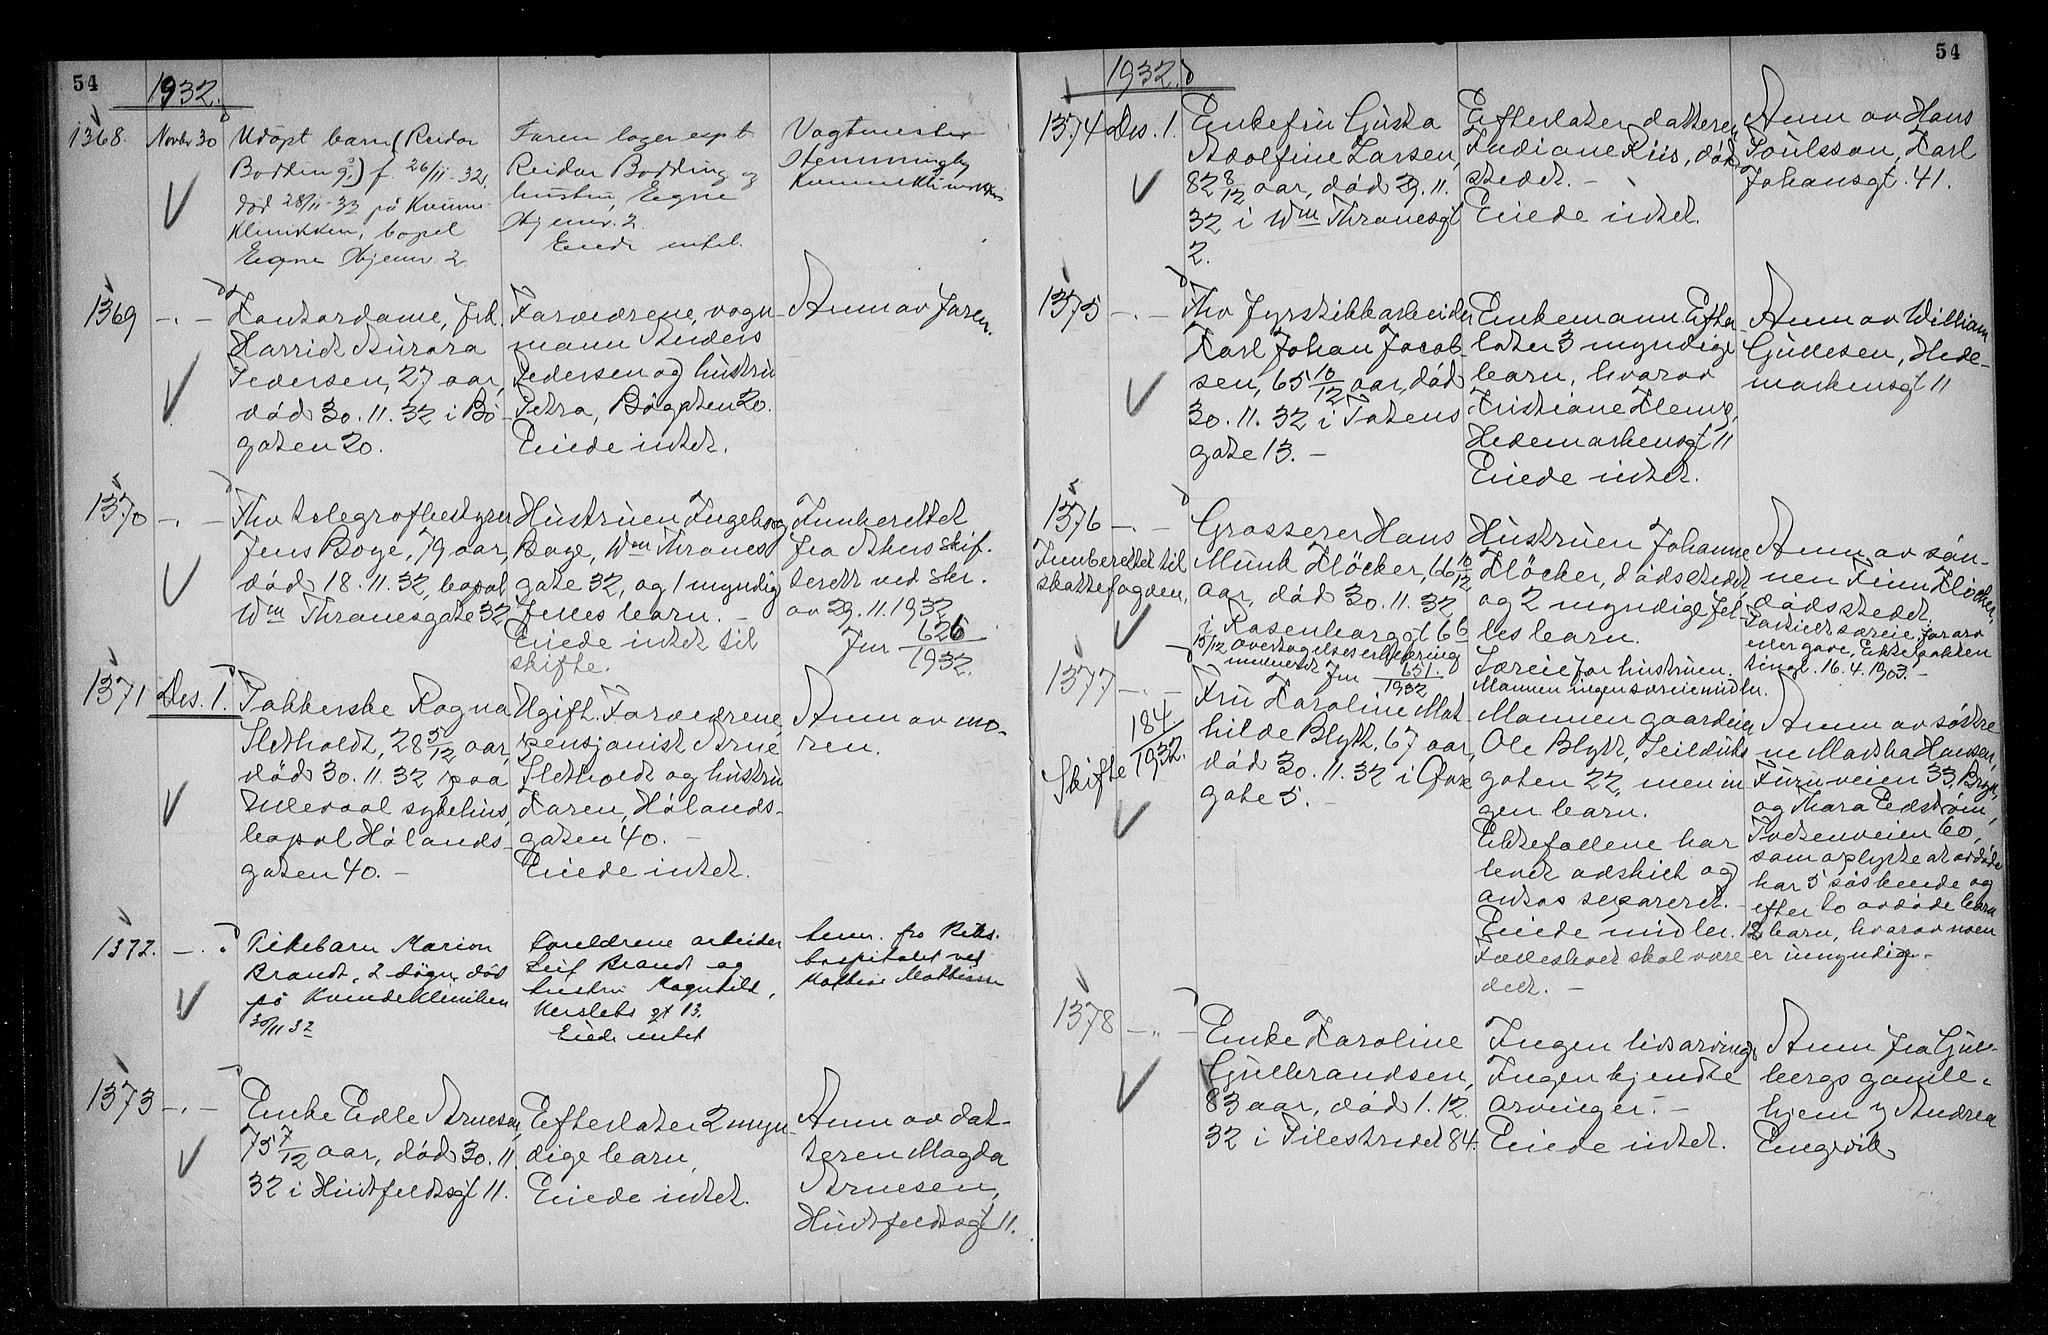 54
1932.
1368.
Novbr 30
Udöpt barn (Reidar
Bodding ) f. 26/11-32,
död 28/11-32 på Kvinne-
klinikken, bopel
Egne Hjemv. 2.
Faren lagerexp.t
Reidar Bodding og
hustru, Egne
Hjemv. 2.
Eiede intet.
Vagtmester
Hemmingby
Kvinneklinikken
1369
-.-
Kontordame, frk.
Harriet Aurora
Pedersen, 27 aar,
död 30.11.32 i Bö-
gaten 20.
Forældrene, vogn-
mann Anders
Pedersen og hustru
Petra, Bögaten 20.
Eiede intet.
Anm av faren.
1370
-.-
Fhv telegrafbestyrer
Jens Boye, 79 aar,
död 18.11.32, bopæl
Wm Thranesgate 32
Hustruen Ingeborg
Boye, Wm Thranes
gate 32, og 1 myndig
felles barn. -
Eiede intet til
skifte.
Innberettet
fra Akers skif-
terett ved skr.
av 29.11.1932
Jnr 626/1932.
1371
Des. 1.
Pakkerske Ragna
Sletholdt, 28 5/12 aar,
död 30.11.32 paa
Ullevaal sykehus,
bopæl Hölands-
gaten 40. -
Ugift. Forældrene,
pensjonist Arne
Sletholdt og hustru
Karen, Hölands-
gaten 40. -
Eiede intet.
Anm av mo-
ren.
1372.
-.
Pikebarn Marion
Brandt, 2 dögn, död
på Kvindekliniken
30/11 32
Foreldrene arbeider
Leif Brandt og
hustru Magnhild,
Herslebs gt 13.
Eiede intet
Anm. fra Riks-
hospitalet ved
Mathias Mathisen
1373
-.-
Enke Edle Arnesen,
75 7/12 aar, död 30.11.
32 i Huitfeldtsgt 11.
Efterlater 2 myn-
dige barn,
Eiede intet.
Anm av dat-
teren Magda
Arnesen,
Huitfeldtsgt 11.
54
1932.
1374
Des. 1.
Enkefru Gusta
Adolfine Larsen,
82 8/12 aar, död 29.11.
32 i Wm Thranesgt
2.
Efterlater datteren
Indiane Riis, död-
stedet. -
Eiede intet.
Anm av Hans
Poulsson, Karl
Johansgt. 41.
1375
-.-
Fhv fyrstikkarbeider
Karl Johan Jacob-
sen, 65 10/12 aar, död
30.11.32 i Totens
gate 13. -
Enkemann. Efter-
later 3 myndige
barn, hvorav
Kristiane
Hedemarkensgt 11
Eiede intet.
Anm av William
Gullesen, Hede-
markensgt 11
1376
-.-
Innberettet til
skattefogden,
Grosserer Hans
Munk Klöcker, 66 10/12
aar, död 30.11.32
i Rosenborggt 6 b
15/12 overtagelseserklæring
Jnr 651/1932
Hustruen Johanne
Klöcker, dödsstedet,
og 2 myndige fel-
les barn.
Særeie for hustruen.
Mannen ingen særeiemidler.
Anm av sön-
nen Finn Klöcker,
dödsstedet.
Særeie for arv
eller gave, Ektepakten
tingl. 16.4.1903. -
1377
-.-
Skifte 184/1932.
Fru Karoline Mat-
hilde Blytt, 67 aar,
död 30.11.32 i Övre
gate 5. -
Mannen gaardeier
Ole Blytt, Seilduks
gaten 22, men in
gen barn.
Ektefellene har
levet adskilt og
antas separeret. -
Eiede midler.
Felleskbet skal være
delt. -
Anm av söstre
ne Martha Hansen,
Furuveien 33, Bryn,
og Thora Edström,
Tvetenveien 60,
som oplyste at avdöde
har 5 söskende og
efter to avdöde barn
12 barn, hvorav noen
er umyndige -
1378
-.-
Enke Karoline
Gulbrandsen,
83 aar, död 1.12.
32 i Pilestredet 84.
Ingen livsarvinger
Ingen kjendte
arvinger. -
Eiede intet.
Anm fra Gull-
bergs gamle-
hjem v Andrea
Engvik